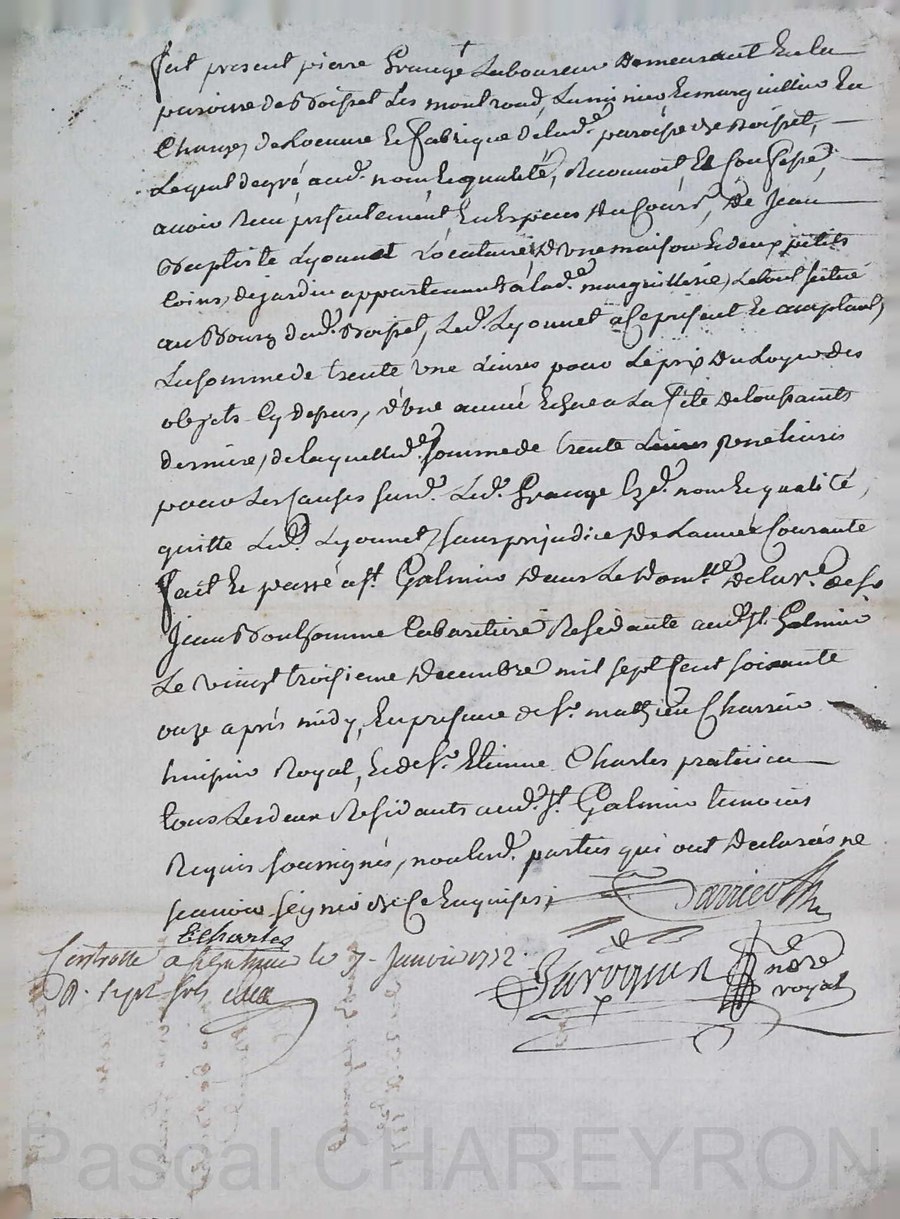 fut present pierre Grange Laboureur Demeurant En la
paroisse de Boisset Les montrond, Luminier Et marguillier En
Charge, de Loeuvre Et fabrique de lad.e paroisse de Boisset,
Lequel de gré aud. nom Et qualité, Reconnoit Et Confesse
avoir Recu presentement En Especes Du Cours, De Jean
Baptiste Lyonnet Locataire D'une maison Et deux petits
Coins, de jardin appartenants á lad.e marguillerie, Le tout scitué
au Bourg dud. Boisset, Led. Lyonnet a Ce present Et acceptant,
La somme de trente une Livres pour Le prix Du Loyer des
objets Cy dessus, d'une année Echue a La fete de toussaints
derniere, de laquelle d.e somme de trente Livres
pour Les Causes susd. Led. Grange Ezd. nom Et qualité,
quitte Led. Lyonnet, sans prejudice De Lannée Courante
fait Et passé a St. Galmier Dans Le Domlle De la ve. de Sr
Jean Bonhomme Cabaretiere Residante aud. St. Galmier
Le vingt troisieme Decembre mil sept Cent soixante
onze aprés midy, En presence de Sr. mathieu Charrier
huissier Royal, Et de Sr. Etienne Charles praticien
tous Les deux Residants aud. St. Galmier temoins
Requis soussignés, non Lesd. parties qui ont Declarées ne
scavoir signer de Ce Enquises,
Echarles
Controllé a St Galmier le 7. Janvier 1772.
R. sept sols
nore
royal
Pascal CHAREYRON